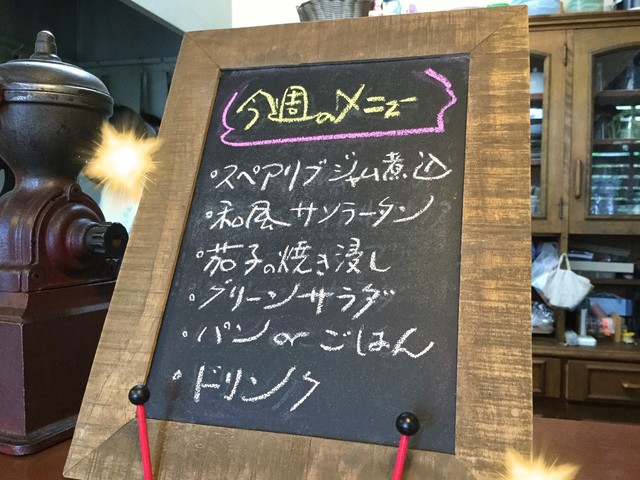 今週のメニュー
・スペアリブジャム煮込
・和風サンラータン
・茄子の焼き浸し
・グリーンサラダ
・パン or ごはん
・ドリンク